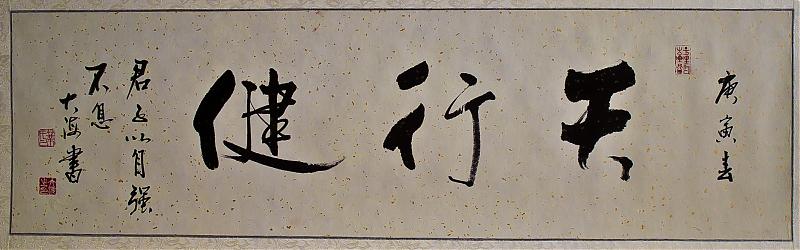 庚寅春
天行健
君子以自强
不息
大海書